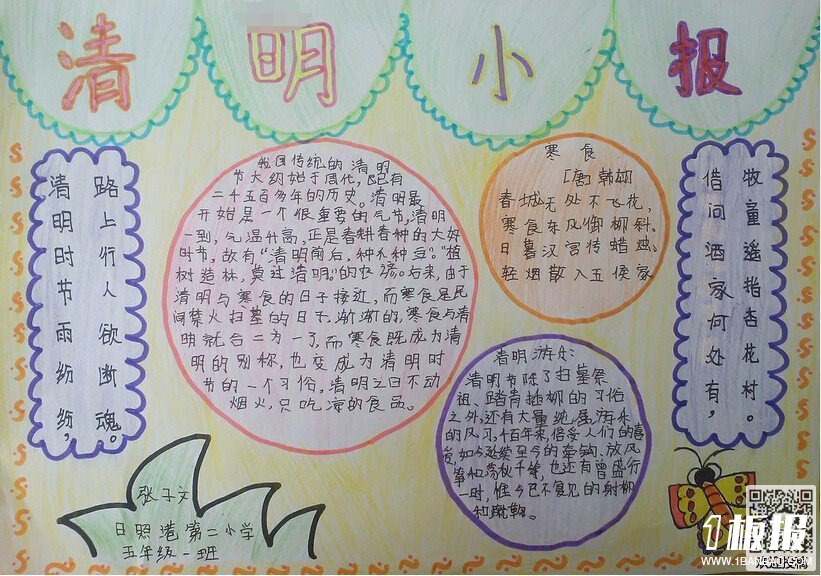 清明小报
路上行人欲断魂。
清明时节雨纷纷，
我国传统的清明
节大约始于周代，已有
二千五百多年的历史。清明最
开始是一个很重要的气节，清明
一到，气温升高，正是春耕春种的大好
时节，故有“清明前后，种瓜种豆”。“植
树造林，莫过清明。”的农谚。后来，由于
清明与寒食的日子接近，而寒食是民
间禁火扫墓的日子，渐渐的，寒食与清
明就合二为一了，而寒食既成为清
明的别称，也变成为清明时
节的一个习俗，清明之日不动
烟火，只吃凉的食品。
寒食
[唐]韩翃
春城无处不飞花，
寒食东风御柳斜。
日暮汉宫传蜡烛，
轻烟散入五侯家
清明游乐：
清明节除了扫墓祭
祖、踏青插柳的习俗
之外，还有大量纯属游乐
的风习，千百年来，倍受人们的喜
爱，如今延续至今的牵钩、放风
筝和荡秋千等，也还有曾盛行
一时，惟今已不复见的射柳
和蹴鞠。
牧童遥指杏花村。
借问酒家何处有，
张子文
日照港第二小学
五年级一班
板报
WWW.1BANBAO.COM
欢迎投稿